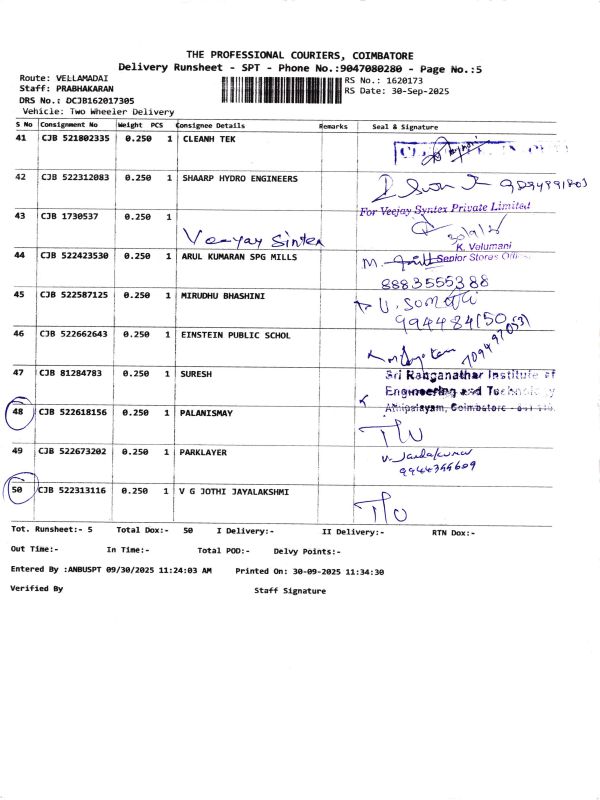 THE PROFESSIONAL COURIERS, COIMBATORE
Delivery Runsheet - SPT - Phone No.:9047080280 - Page No.:5
Route: VELLAMADAI RS No.: 1620173
Staff: PRABHAKARAN RS Date: 30-Sep-2025
DRS No.: DCJB162017305
Vehicle: Two Wheeler Delivery
S No Consignment No Weight PCS Consignee Details Remarks Seal & Signature
41 CJB 521802335 0.250 1 CLEANH TEK
42 CJB 522312083 0.250 1 SHAARP HYDRO ENGINEERS
For Veejay Syntex Private Limited
43 CJB 1730537 0.250 1
Veejay Sintex 30/9/25
K. Velumani
44 CJB 522423530 0.250 1 ARUL KUMARAN SPG MILLS M. Senior Stores
8883555388
45 CJB 522587125 0.250 1 MIRUDHU BHASHINI U.
46 CJB 522662643 0.250 1 EINSTEIN PUBLIC SCHOL
47 CJB 81284783 0.250 1 SURESH Sri Ranganathar Institute of
Engineering and Technology
48 CJB 522618156 0.250 1 PALANISMAY Athipalayam, Coimbatore
49 CJB 522673202 0.250 1 PARKLAYER
50 CJB 522313116 0.250 1 V G JOTHI JAYALAKSHMI
Tot. Runsheet:- 5 Total Dox:- 50 I Delivery:- II Delivery:- RTN Dox:-
Out Time:- In Time:- Total POD:- Delvy Points:-
Entered By :ANBUSPT 09/30/2025 11:24:03 AM Printed On: 30-09-2025 11:34:30
Verified By Staff Signature